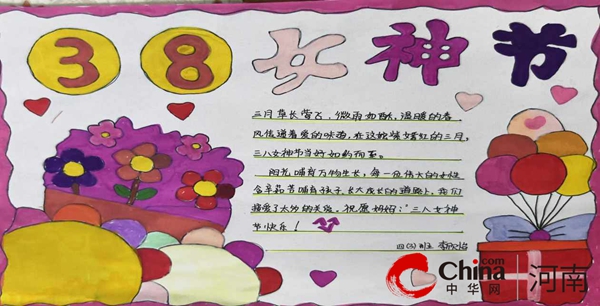 38女神节
三月草长莺飞，微雨如酥，温暖的春
风传递着爱的味道，在这姹紫嫣红的三月，
三八女神节当好如约而至。
阳光哺育万物生长，每一位伟大的女性
含辛茹苦哺育孩子长大成长的道路上，我们
接受了太多的关爱，祝愿妈妈："三八女神
节快乐！
四(3)班
China
.com
中华网
河南